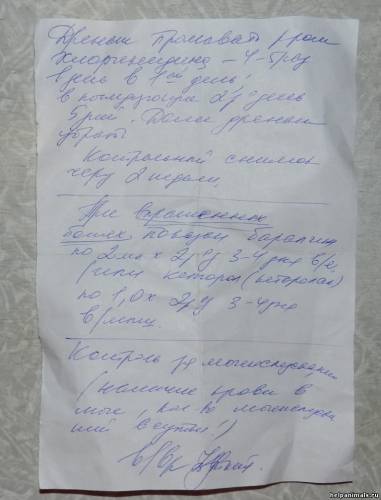 Дренаж промывать р-ром
хлоргексидина – 4-5 раз
в день в 1ый день,
в последующие 2 р/день
5 дней. Далее дренаж
убрать
Контрольный снимок
через 2 недели.
При выраженных
болях показан баралгин
по 2 мл x 2 р/д 3-4 дня в/в,
или кеторол (кеторолак)
по 1,0 x 2 р/д 3-4 дня
в/мыш.
Контроль за мочеиспусканием
(наличие крови в
моче, кол-во мочеиспусканий
в сутки!)
в/вр
helpanimals.ru